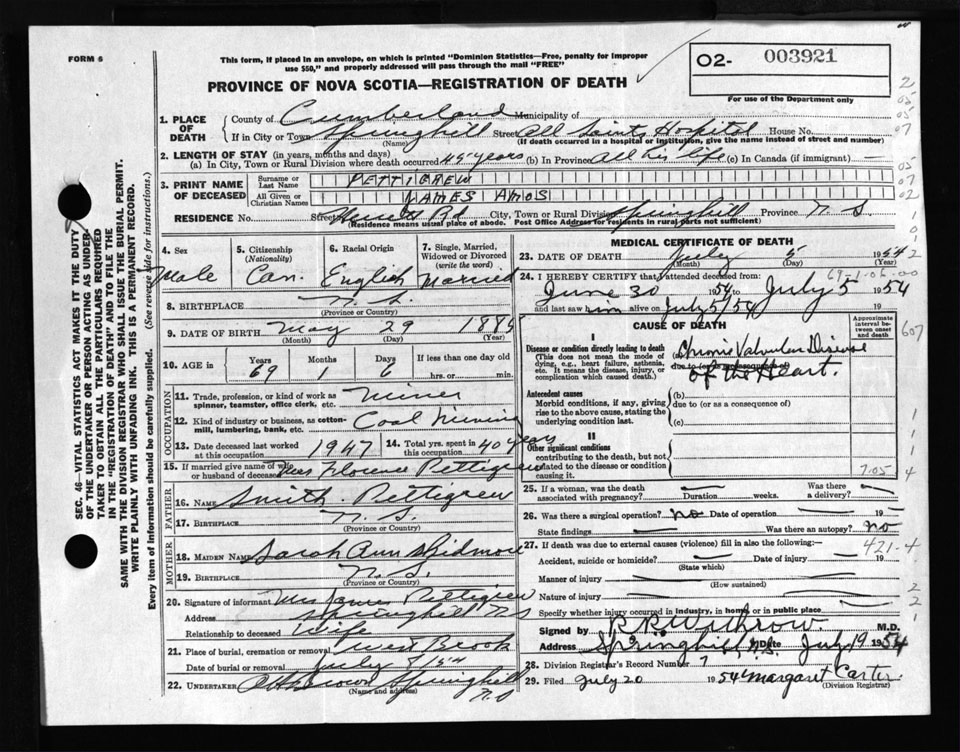 FORM 6
This form, if placed in an envelope, on which is printed "Dominion Statistics—Free, penalty for improper
use $50," and properly addressed will pass through the mail "FREE"
PROVINCE OF NOVA SCOTIA—REGISTRATION OF DEATH
O2- 003921
For use of the Department only
1. PLACE OF DEATH
County of Cumberland Municipality of
If in City or Town Springhill Street All Saints Hospital House No.
(Name) (If death occurred in a hospital or institution, give the name instead of street and number)
2. LENGTH OF STAY (in years, months and days)
(a) In City, Town or Rural Division where death occurred 45 years (b) In Province All his life (c) In Canada (if immigrant) —
3. PRINT NAME OF DECEASED
Surname or Last Name PETTIGREW
All Given or Christian Names JAMES AMOS
RESIDENCE No. Street Herrett Rd City, Town or Rural Division Springhill Province N S
(Residence means usual place of abode. Post Office Address for residents in rural parts not sufficient)
4. Sex Male
5. Citizenship (Nationality) Can.
6. Racial Origin English
7. Single, Married, Widowed or Divorced (write the word) Married
8. BIRTHPLACE N. S.
(Province or Country)
9. DATE OF BIRTH May 29 1885
(Month) (Day) (Year)
10. AGE in Years 69 Months 1 Days 6 If less than one day old hrs. or min.
OCCUPATION
11. Trade, profession, or kind of work as spinner, teamster, office clerk, etc. Miner
12. Kind of industry or business, as cotton-mill, lumbering, bank, etc. Coal Mining
13. Date deceased last worked at this occupation 1947
14. Total yrs. spent in this occupation 40 years
15. If married give name of wife or husband of deceased Mrs Florence Pettigrew
FATHER
16. NAME Smith Pettigrew
17. BIRTHPLACE N. S.
(Province or Country)
MOTHER
18. MAIDEN NAME Sarah Ann Skidmore
19. BIRTHPLACE N. S.
(Province or Country)
20. Signature of informant Mrs James Pettigrew
Address Springhill NS
Relationship to deceased Wife
21. Place of burial, cremation or removal West Brook
Date of burial or removal July 8/54
22. UNDERTAKER Brown Springhill
(Name and address) N. S
MEDICAL CERTIFICATE OF DEATH
23. DATE OF DEATH July 5 1954
(Month) (Day) (Year)
24. I HEREBY CERTIFY that I attended deceased from 69-1-06-00
June 30 1954 to July 5 1954
and last saw him alive on July 5/54 19
CAUSE OF DEATH
Approximate interval between onset and death
I
Disease or condition directly leading to death
(This does not mean the mode of dying, e.g., heart failure, asthenia, etc. It means the disease, injury, or complication which caused death.)
(a) Chronic Valvular Disease
due to (or as a consequence of)
of the Heart.
Antecedent causes
Morbid conditions, if any, giving rise to the above cause, stating the underlying condition last.
(b)
due to (or as a consequence of)
(c)
II
Other significant conditions
contributing to the death, but not related to the disease or condition causing it. 7.05
25. If a woman, was the death associated with pregnancy? — Duration — weeks. Was there a delivery? —
26. Was there a surgical operation? no Date of operation — 19 —
State findings — Was there an autopsy? no
27. If death was due to external causes (violence) fill in also the following:— 421-4
Accident, suicide or homicide? — Date of injury — 19
(State which)
Manner of injury —
(How sustained)
Nature of injury —
Specify whether injury occurred in industry, in home or in public place
Signed by R. R. Withrow M.D.
Address Springhill, N.S. Date July 19 1954
28. Division Registrar's Record Number 7
29. Filed July 20 1954 Margaret Carter
(Division Registrar)
SEC. 46—VITAL STATISTICS ACT MAKES IT THE DUTY
OF THE UNDERTAKER OR PERSON ACTING AS UNDER-
TAKER TO OBTAIN ALL THE PARTICULARS REQUIRED
IN THE "REGISTRATION OF DEATH" AND TO FILE THE
SAME WITH THE DIVISION REGISTRAR WHO SHALL ISSUE THE BURIAL PERMIT.
WRITE PLAINLY WITH UNFADING INK. THIS IS A PERMANENT RECORD.
Every item of information should be carefully supplied. (See reverse side for instructions.)
2
05
05
07
05
07
02
1
0
2
607
1
1
1
4
2
2